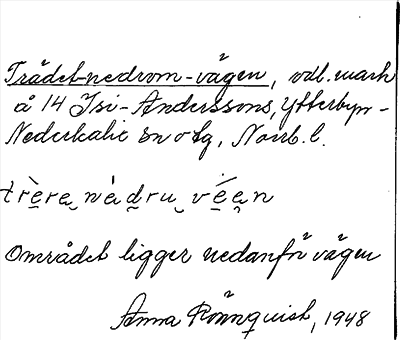 Trädet-nedrom-vägen, odl.mark
å 14 Isi-Anderssons, Ytterbyn-
Nederkalix sn o tg, Norrb. l.
trèra nèdru véen
Området ligger nedanför vägen
Anna Rönnquist, 1948